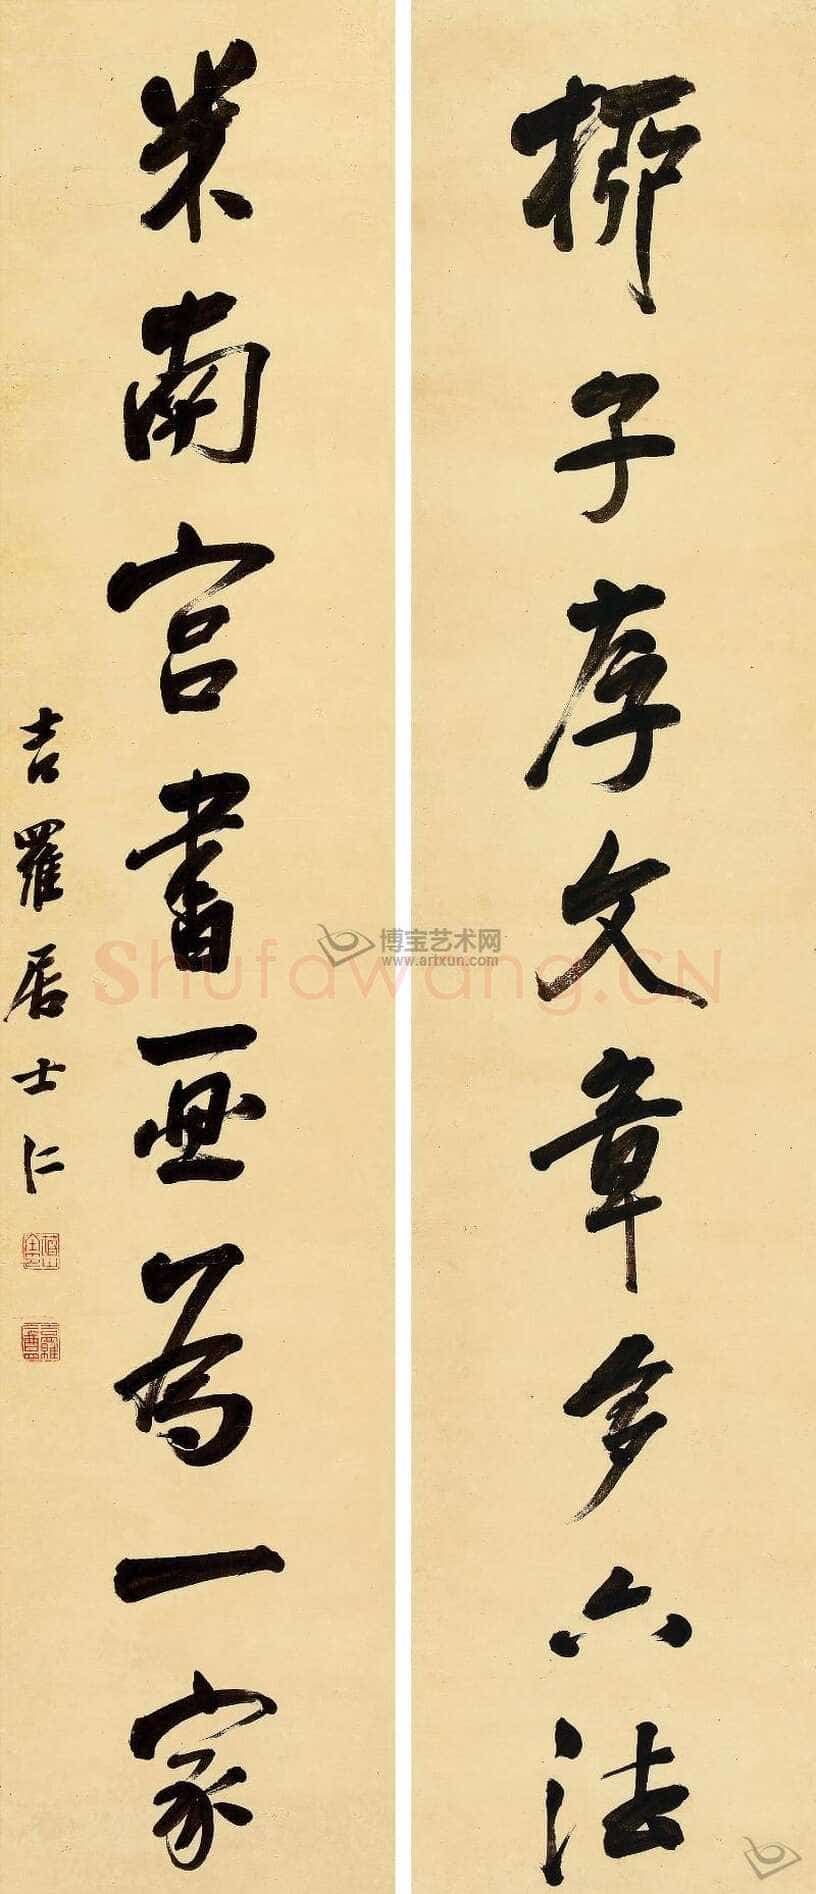 柳子存文章多六法
米南宫書画為一家
吉羅居士仁
博宝艺术网
www.artxun.com
shufawang.CN